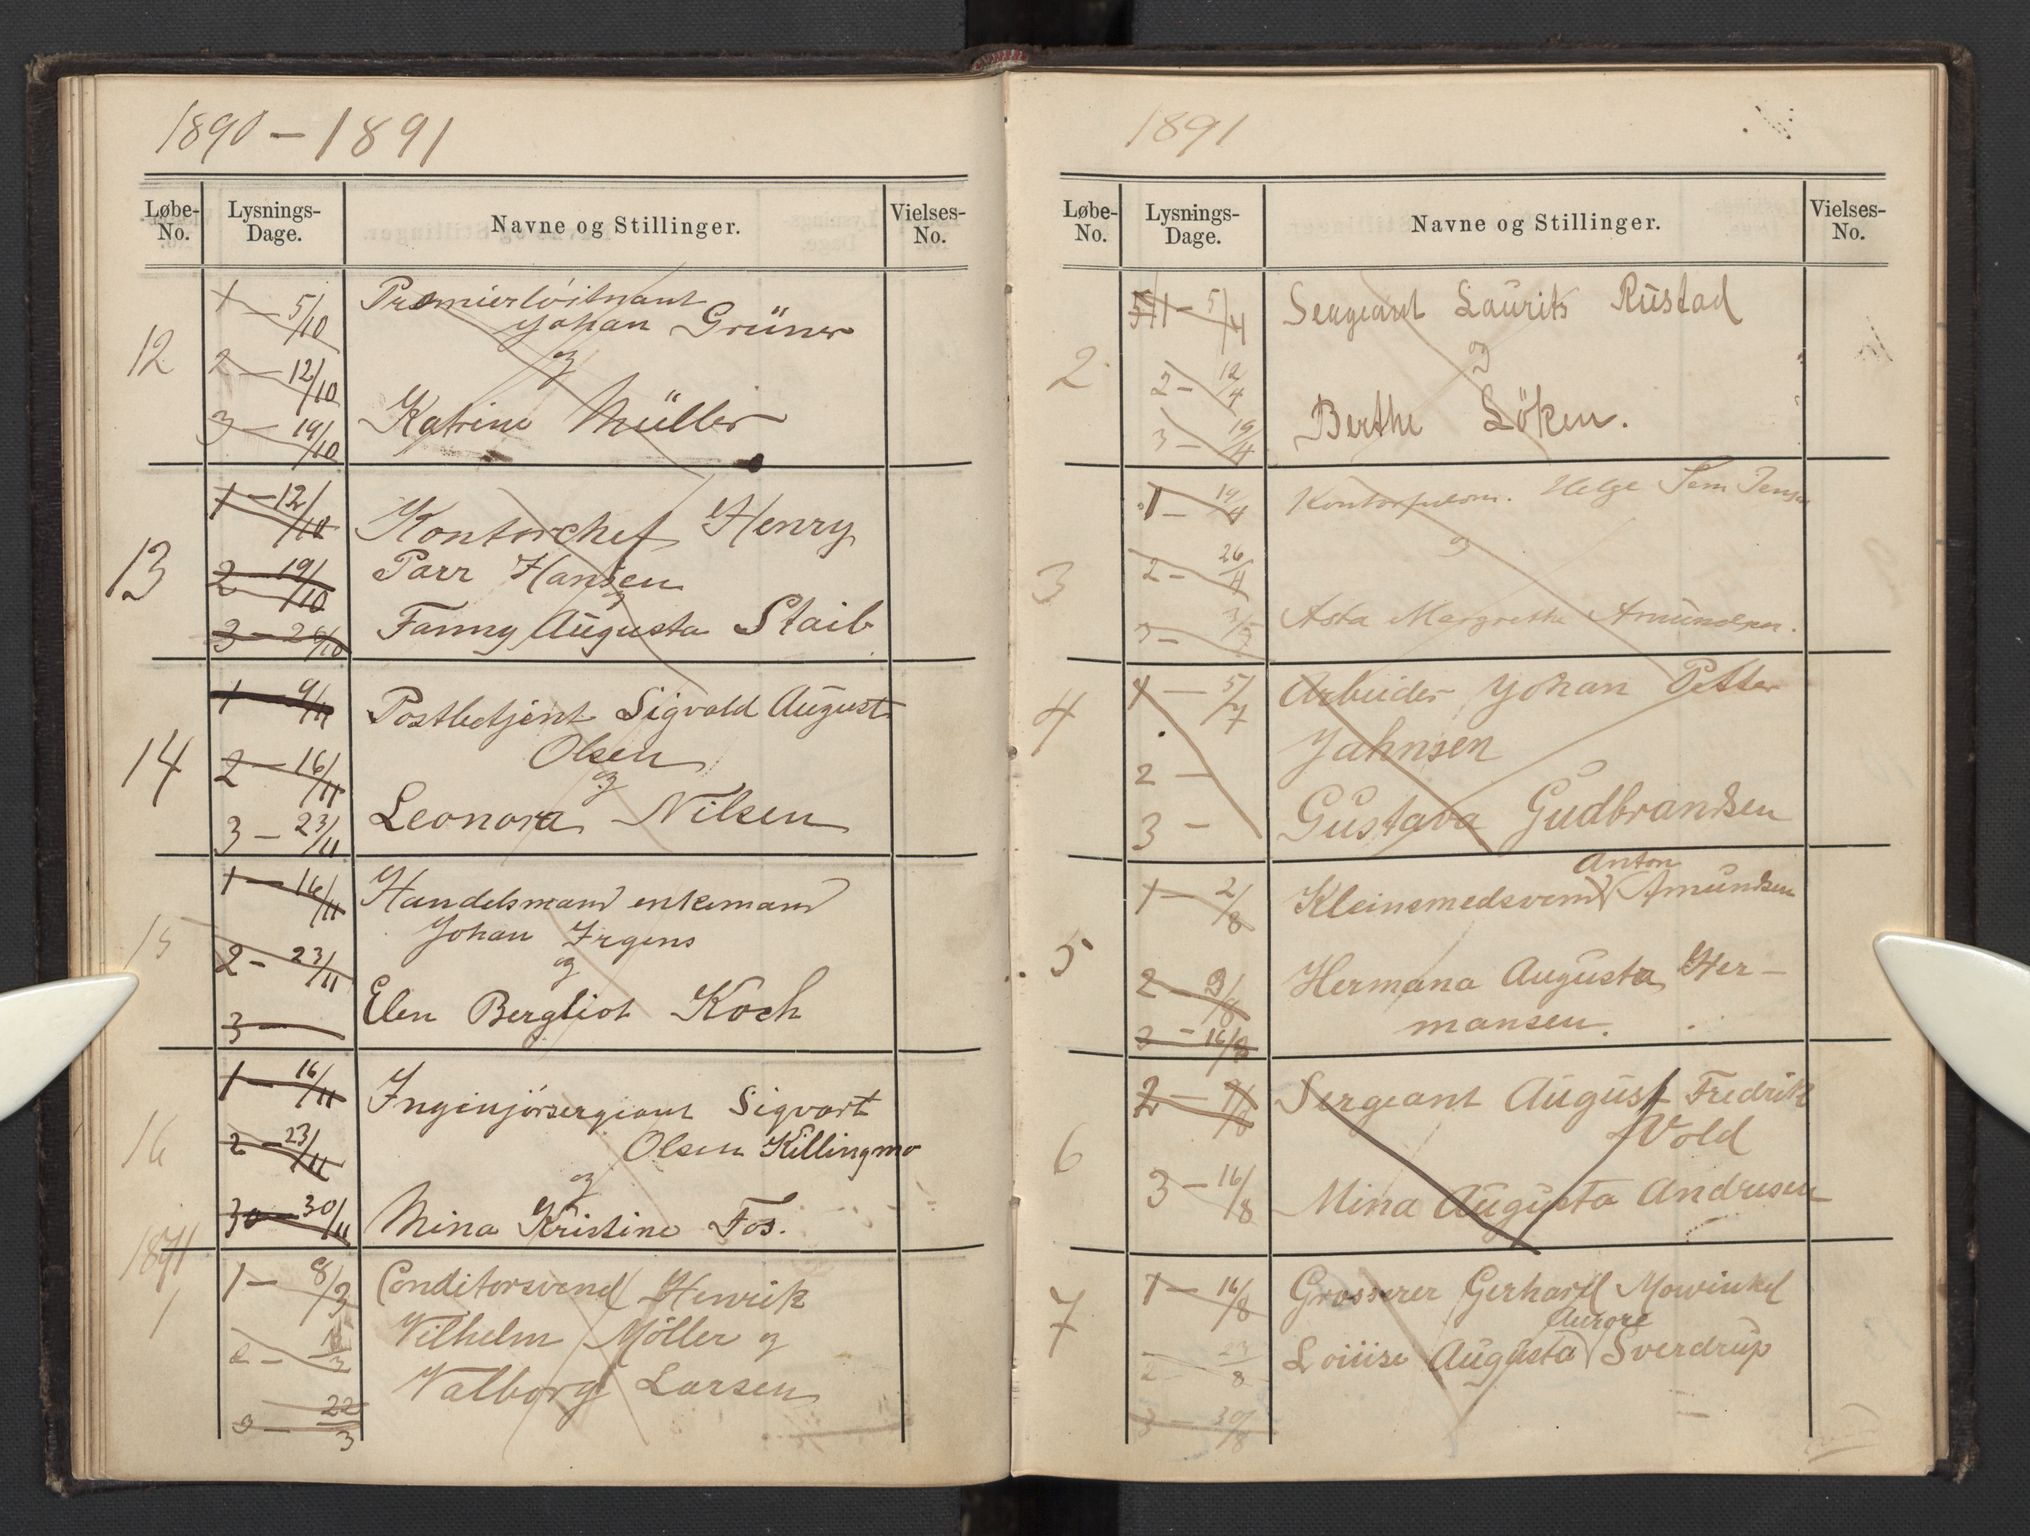 1890 - 1891
Løbe- No.
Lysnings- Dage.
Navne og Stillinger.
Vielses- No.
12
1 - 5/10
2 - 12/10
3 - 19/10
Premierløitnant
Johan Grüner
og
Katrine Müller
13
1 - 12/10
2 - 19/10
3 - 26/10
Kontorchef Henry
Parr Hansen
og
Fanny Augusta Staib
14
1 - 9/11
2 - 16/11
3 - 23/11
Postbetjent Sigvald August
Olsen
og
Leonora Nilsen
15
1 - 16/11
2 - 23/11
3 -
Handelsmand enkemand
Johan Irgens
og
Elen Bergliot Koch
16
1 - 16/11
2 - 23/11
30 - 30/11
Inginjørsergeant Sigvart
Olsen Killingmo
og
Mina Kristine Fos.
1891
1
1 - 8/3
2 - 15/3
3 - 22/3
Conditorsvend Henrik
Vilhelm Möller og
Valborg Larsen
1891
Løbe- No.
Lysnings- Dage.
Navne og Stillinger.
Vielses- No.
2
1 - 5/4
2 - 12/4
3 - 19/4
Seageant Laurits Rustad
og
Berthe Löken.
3
1 - 19/4
2 - 26/4
3 - 3/5
Helge Sem Jensen
og
Asta Margrethe Amundsen.
4
1 - 5/7
2 -
3 -
Arbeider Johan Petter
Jahnsen
Gustava Gudbrandsen
5
1 - 2/8
2 - 9/8
3 - 16/8
Anton
Kleinsmedsvend Amundsen
Hermana Augusta Her-
mansen.
6
2 - 9/8
3 - 16/8
Sergeant August Fredrik
Wold
Mina Augusta Andresen
7
1 - 16/8
2 - 23/8
3 - 30/8
Grosserer Gerhard Mowinkel
Aurore
Louise Augusta Sverdrup